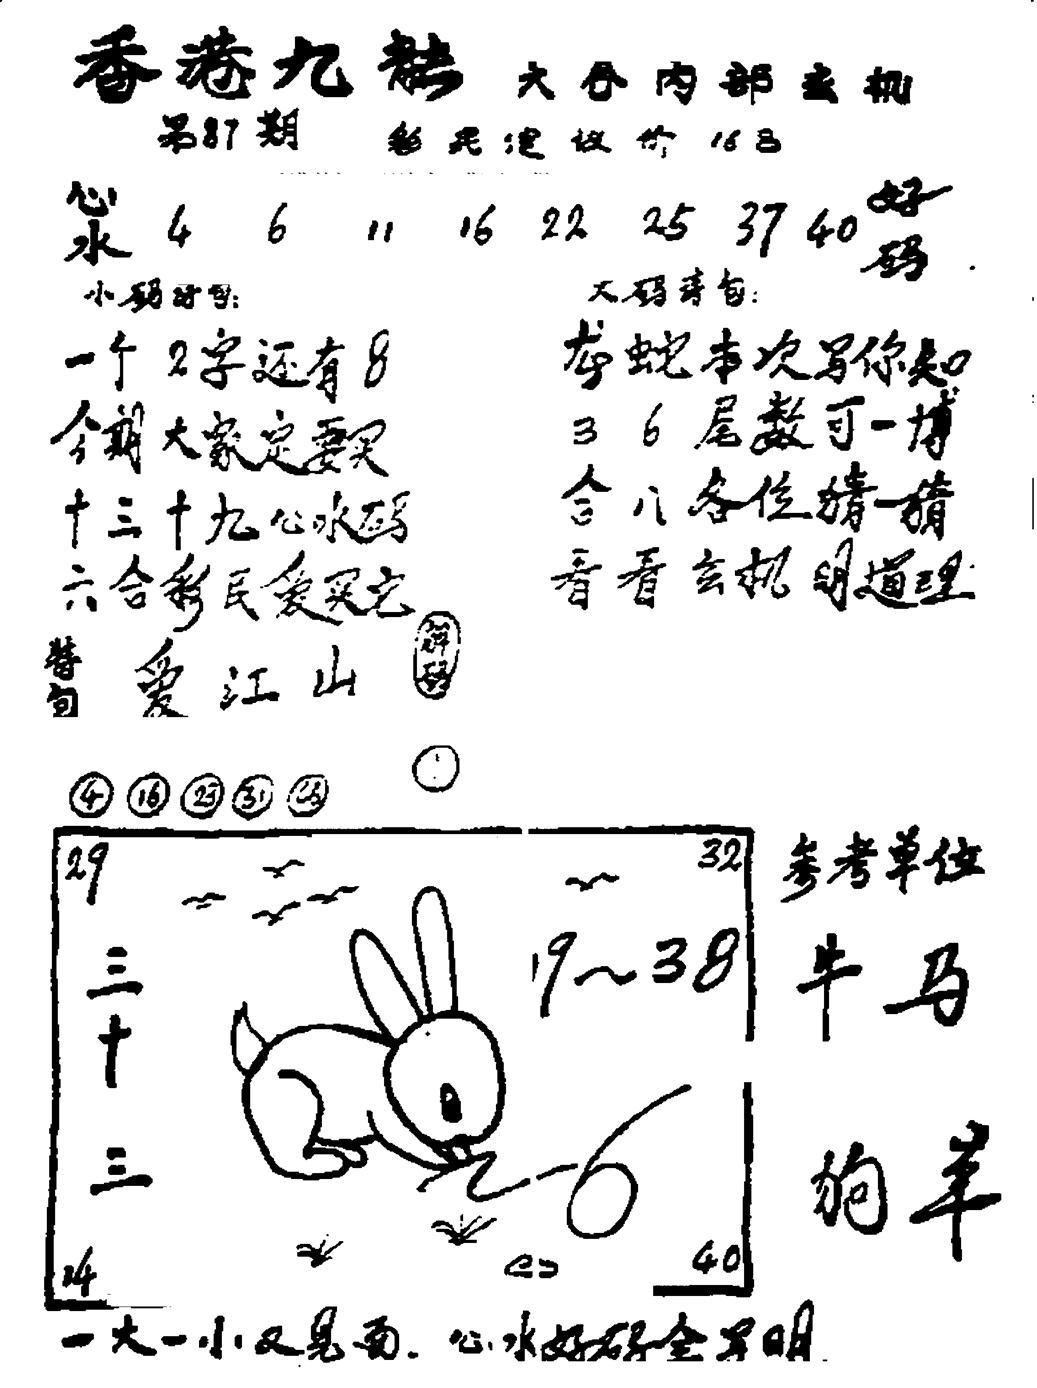 香港九龙 六合内部玄机
第87期 彩民建议价 16 8
心水 4 6 11 16 22 25 37 40 好码
小码诗句: 大码诗句:
一个2字还有8
今期大家定要买
十三十九心水码
六合彩民爱买它
龙蛇本次写你知
36尾数可一博
合八各位猜一猜
看看玄机明道理
替句 爱江山 解码
4 16 25 31
29 32
19~38
三十三
14 40
参考单位
牛 马
狗 羊
一大一小又见面. 心水好码全写明.